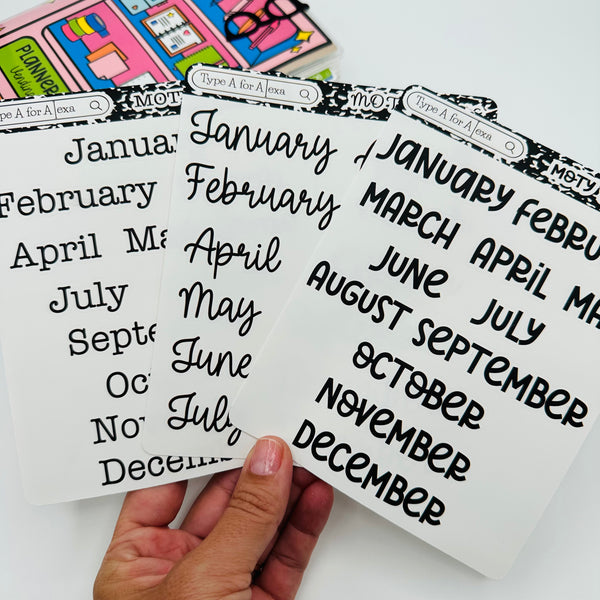 PLANNER
Type A for Alexa
MOT
Janua
February
April Ma
July
Septe
Oc
No
Decem
Type A for Alexa
MOT
January
February
April
May
June
July
Type A for Alexa
MOTY
JANUARY FEBRU
MARCH APRIL MA
JUNE JULY
AUGUST SEPTEMBER
OCTOBER
NOVEMBER
DECEMBER